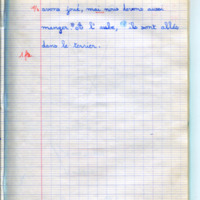 avons joué, moi nous devons aussi
manger." À l'aube, ils sont allés
dans le terrier.